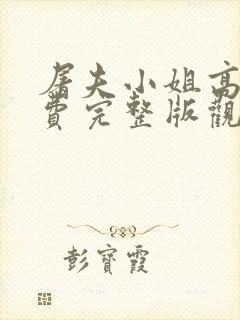 屠夫小姐高
費完整版觀
彭寶霞